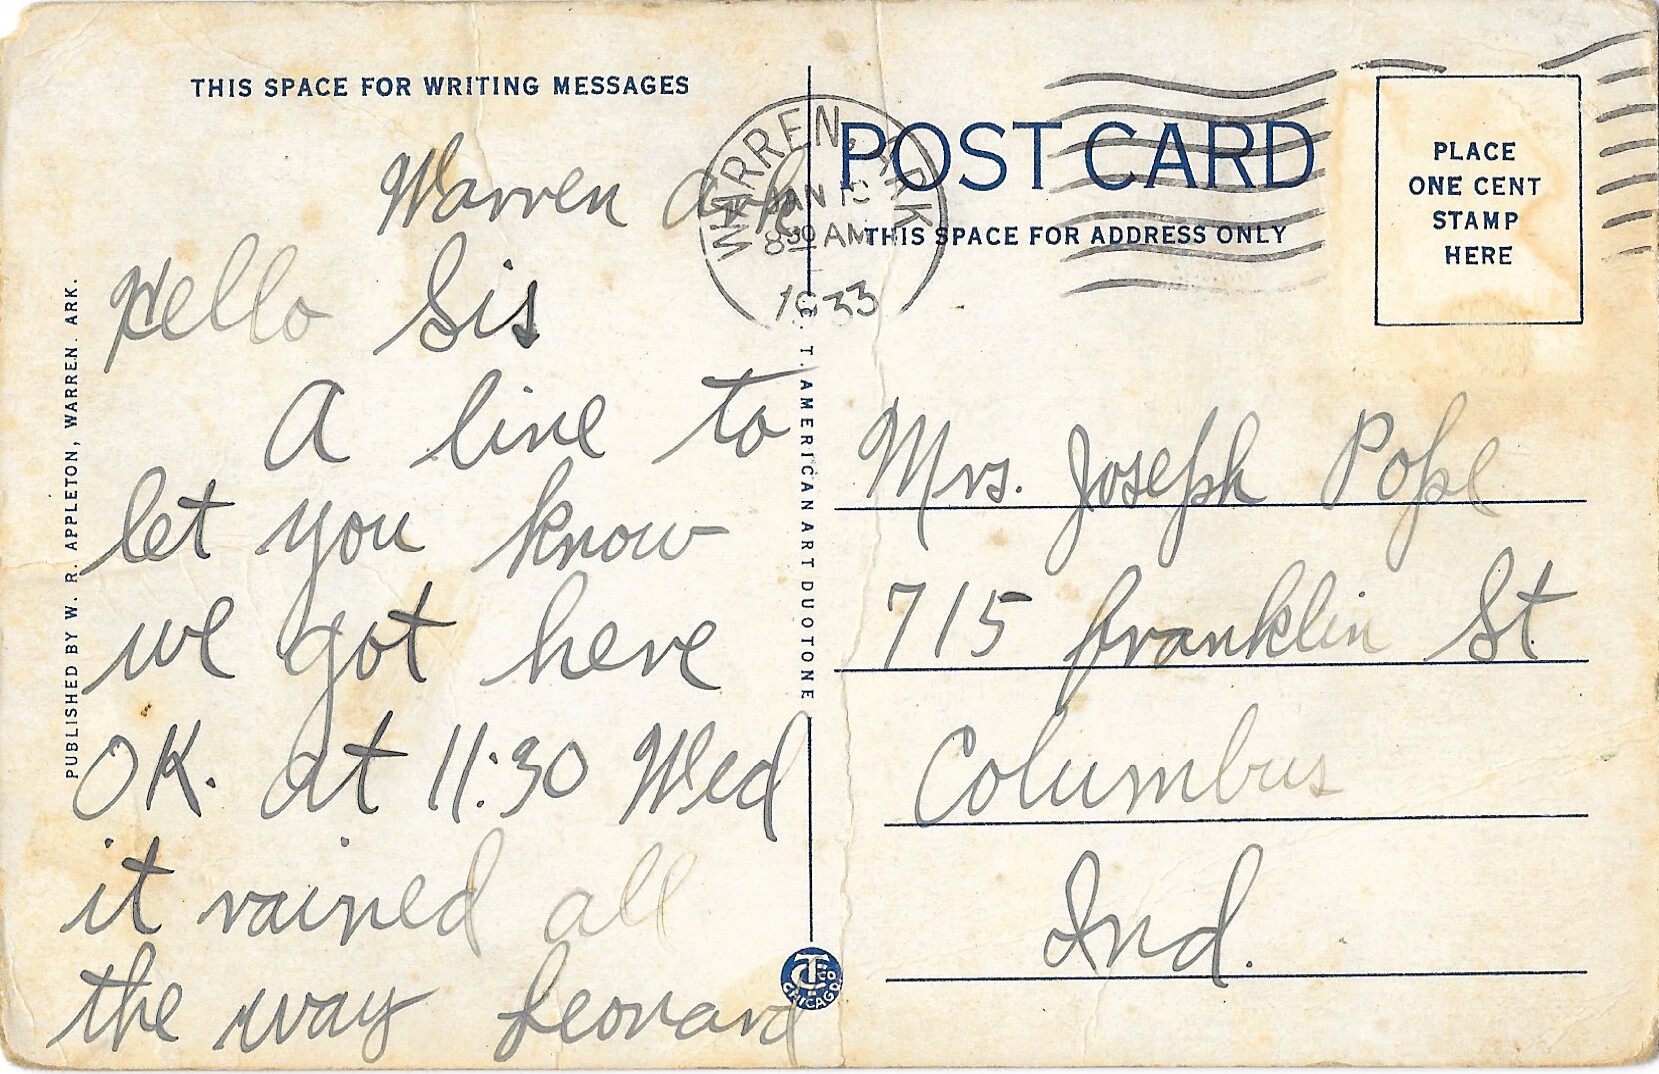 THIS SPACE FOR WRITING MESSAGES
Warren Ark
Hello Sis
A line to
let you know
we got here
OK. at 11:30 Wed
it rained all
the way Leonard
PUBLISHED BY W. R. APPLETON, WARREN. ARK.
C. T. AMERICAN ART DUOTONE
WARREN, ARK
JAN
8 30 AM
1933
POST CARD
THIS SPACE FOR ADDRESS ONLY
PLACE
ONE CENT
STAMP
HERE
Mrs. Joseph Pope
715 franklin St
Columbus
Ind.
CHICAGO